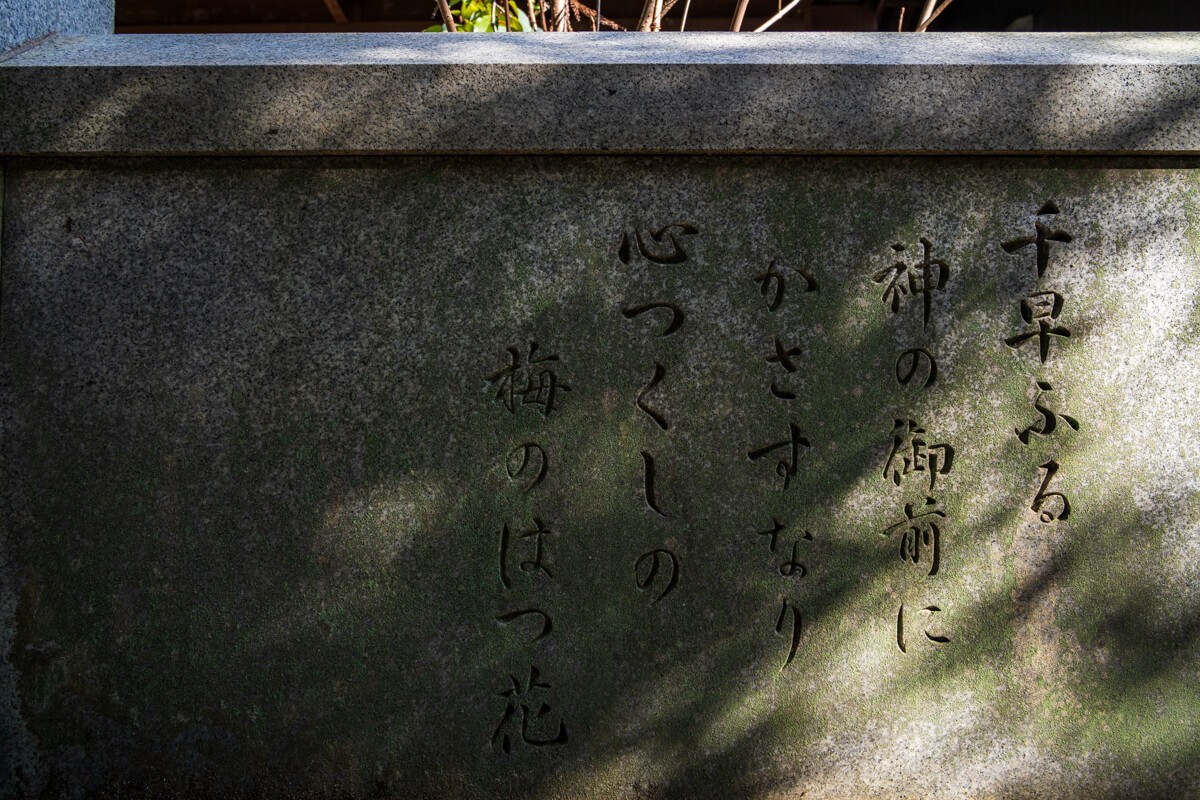 千早ふる
神の御前に
かさすなり
心つくしの
梅のはつ花